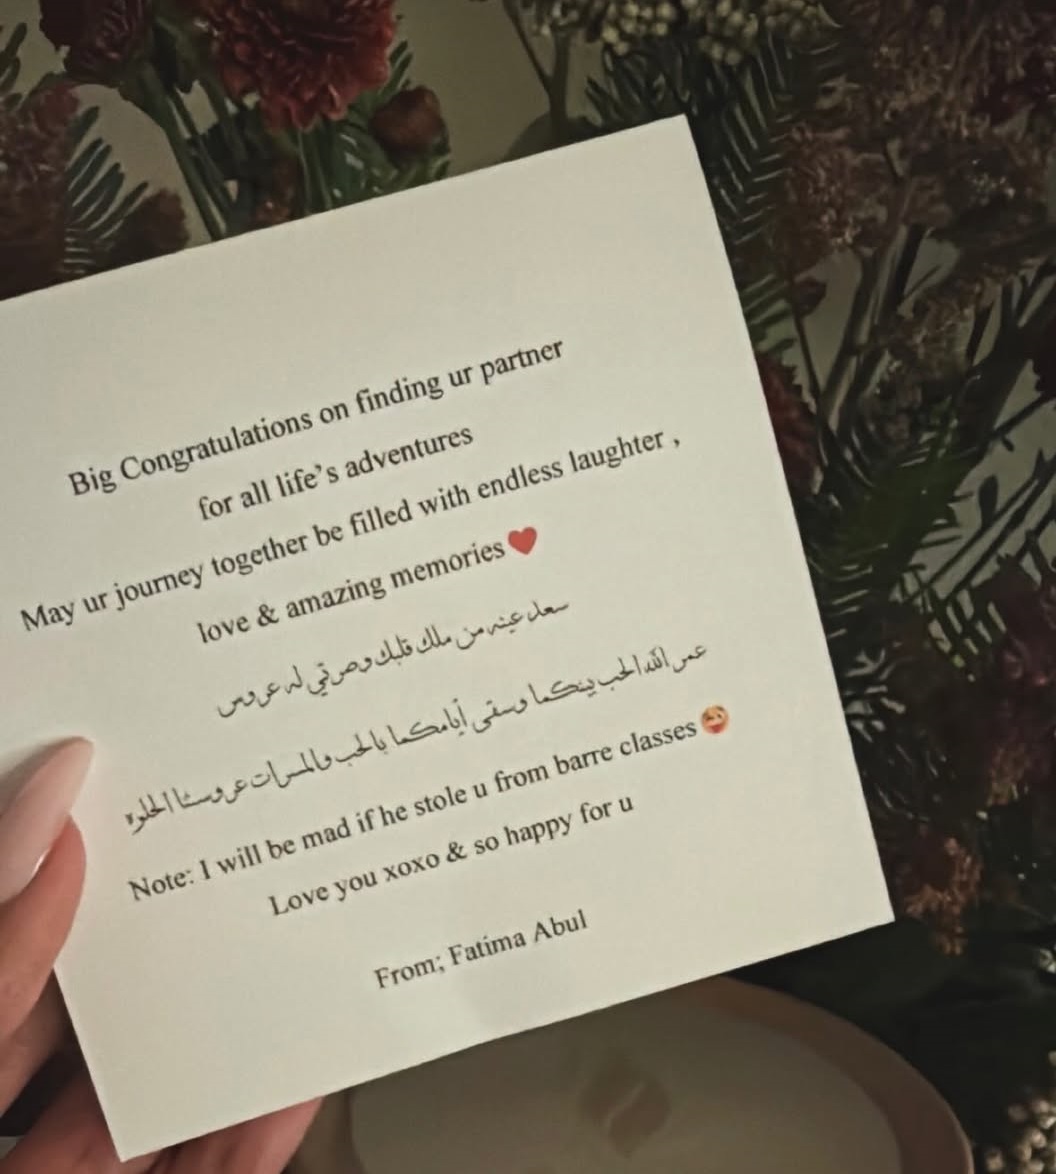 Big Congratulations on finding ur partner
for all life's adventures
May ur journey together be filled with endless laughter ,
love & amazing memories❤️
سعد عينه من ملك قلبك وصرتي له عروس
عمر الله الحب بينكما وسقى أيامكما بالحب والمسرات عروستنا الحلوه
Note: I will be mad if he stole u from barre classes🤪
Love you xoxo & so happy for u
From; Fatima Abul